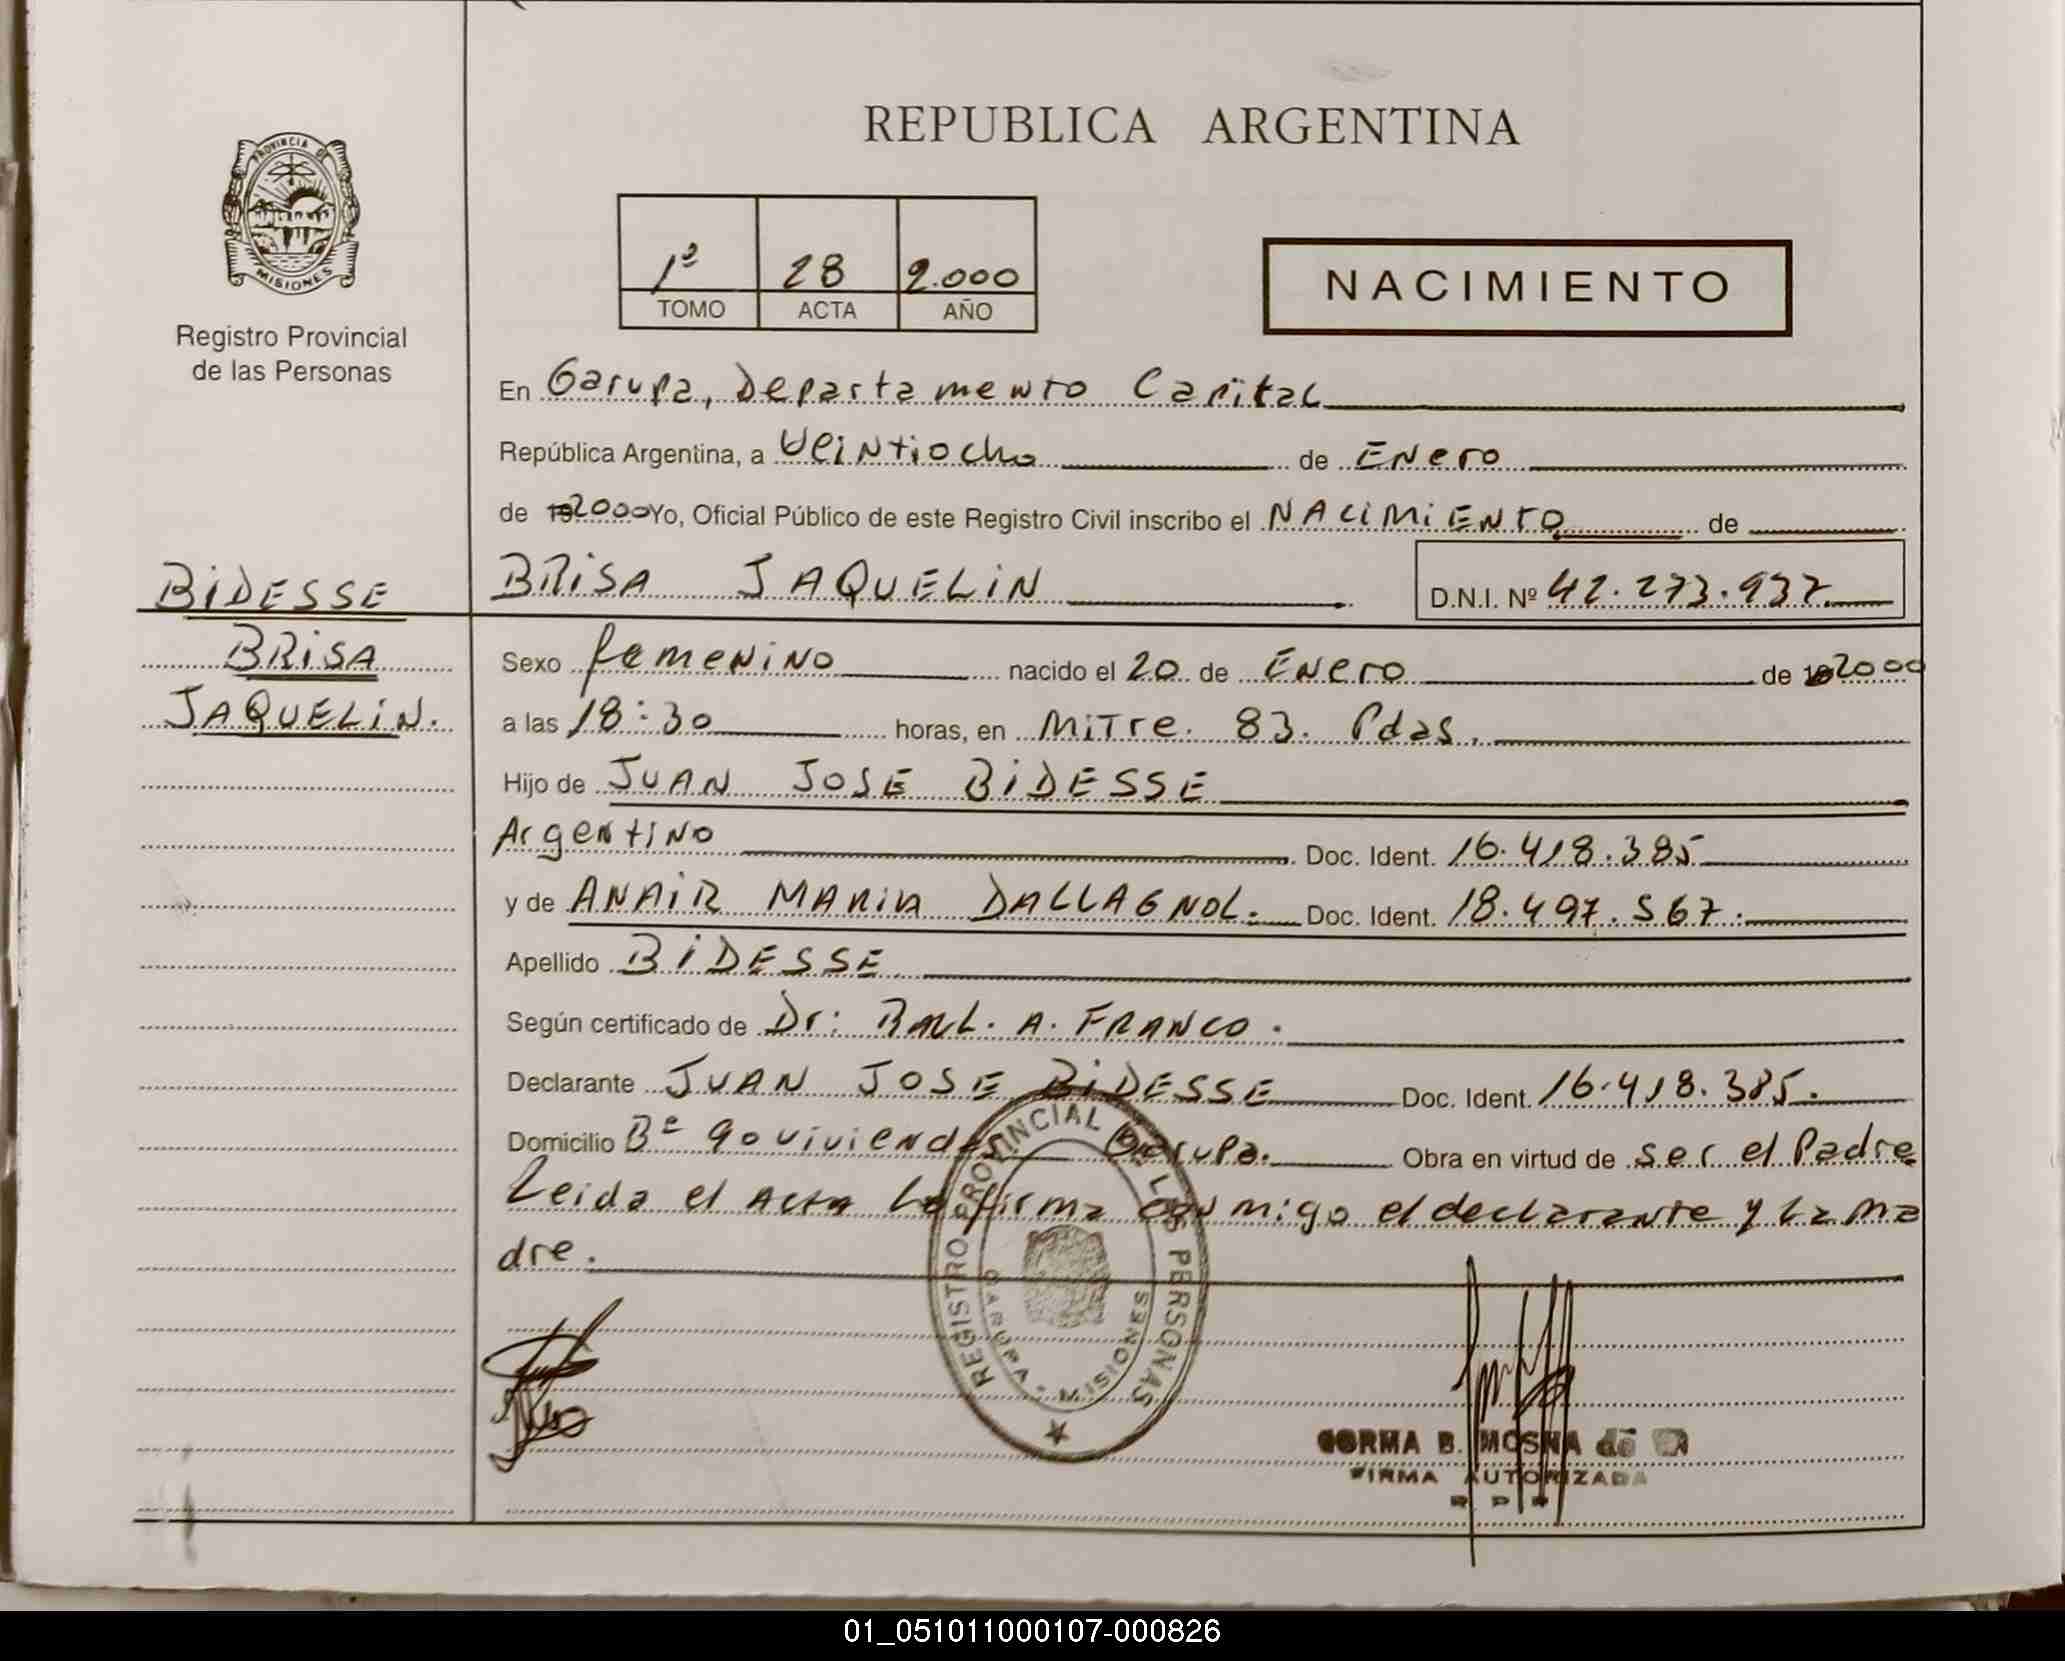 REPUBLICA ARGENTINA
PROVINCIA DE
MISIONES
Registro Provincial
de las Personas
1º 28 2.000
TOMO ACTA AÑO
NACIMIENTO
En Garupa, Departamento Capital
República Argentina, a Veintiocho de Enero
de 2000 Yo, Oficial Público de este Registro Civil inscribo el NACIMIENTO de
BIDESSE
BRISA
JAQUELIN.
BRISA JAQUELIN D.N.I. Nº 42.273.937
Sexo femenino nacido el 20 de Enero de 2000
a las 18:30 horas, en Mitre. 83. Pdas.
Hijo de JUAN JOSE BIDESSE
Argentino Doc. Ident. 16.418.385
y de ANAIR MARIA DALLAGNOL. Doc. Ident. 18.497.567.
Apellido BIDESSE
Según certificado de Dr: RAUL. A. FRANCO.
Declarante JUAN JOSE BIDESSE Doc. Ident. 16.418.385.
Domicilio Bº 90 viviendas Garupa. Obra en virtud de ser el Padre
Leida el Acta la firma conmigo el declarante y la ma
dre.
REGISTRO PROVINCIAL DE LAS PERSONAS
GARUPA - MISIONES
B. MOSNA de
FIRMA AUTORIZADA
01_051011000107-000826